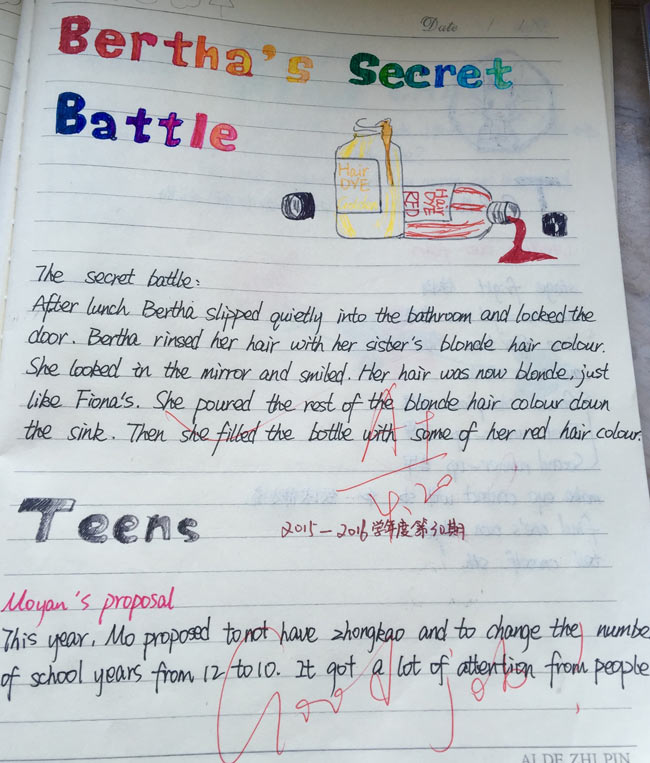 Date
Bertha's Secret
Battle
Hair
DYE
Hair
DYE
RED
The secret battle:
After lunch Bertha slipped quietly into the bathroom and locked the
door. Bertha rinsed her hair with her sister's blonde hair colour.
She looked in the mirror and smiled. Her hair was now blonde, just
like Fiona's. She poured the rest of the blonde hair colour down
the sink. Then she filled the bottle with some of her red hair colour.
A+
4.20
Teens
2015-2016学年度第30期
Moyan's proposal
This year, Mo proposed to not have zhongkao and to change the numbe
of school years from 12 to 10. It got a lot of attention from people
Good job!
AI DE ZHI PIN